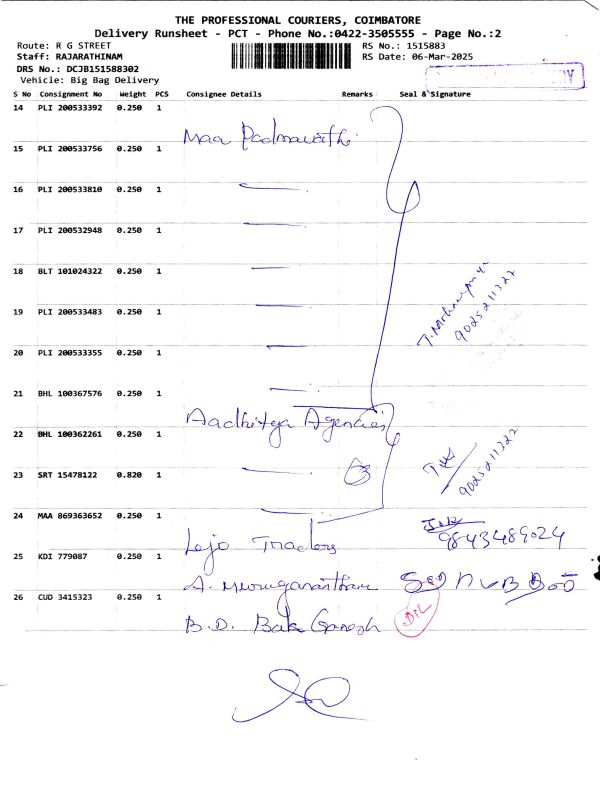 THE PROFESSIONAL COURIERS, COIMBATORE
Delivery Runsheet - PCT - Phone No.:0422-3505555 - Page No.:2
Route: R G STREET
RS No.: 1515883
Staff: RAJARATHINAM
RS Date: 06-Mar-2025
DRS No.: DCJB151588302
Vehicle: Big Bag Delivery
S No Consignment No Weight PCS Consignee Details Remarks Seal & Signature
14 PLI 200533392 0.250 1
Maa Padmavathi
15 PLI 200533756 0.250 1
16 PLI 200533810 0.250 1
17 PLI 200532948 0.250 1
18 BLT 101024322 0.250 1
9025211322
19 PLI 200533483 0.250 1
20 PLI 200533355 0.250 1
21 BHL 100367576 0.250 1
Aadhitya Agencies
22 BHL 100362261 0.250 1
9025211322
23 SRT 15478122 0.820 1
24 MAA 869363652 0.250 1
Lejo Traders 9843489024
25 KDI 779087 0.250 1
A. Muruganantham
26 CUD 3415323 0.250 1
B.D. Bala Ganesh